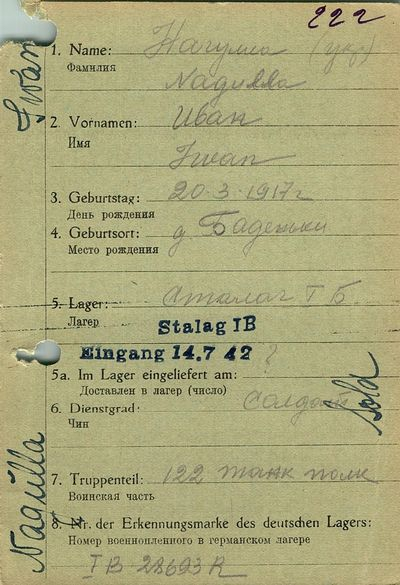 222
Iwan
1. Name: Нагулла (укр)
Фамилия
Nagulla
2. Vornamen: Иван
Имя
Iwan
3. Geburtstag: 20·3·1917г
День рождения
4. Geburtsort: д
Место рождения
5. Lager: Сталаг I Б
Лагер
Stalag IB
Eingang 14.7 42 ?
5a. Im Lager eingeliefert am:
Доставлен в лагер (число)
6. Dienstgrad: Солдат Sold
Чин
Nagulla
7. Truppenteil: 122 танк полк
Воинская часть
8. Nr. der Erkennungsmarke des deutschen Lagers:
Номер военнопленного в германском лагере
I B 28693 R